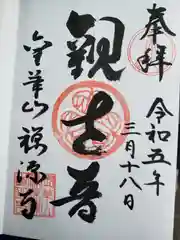 奉拝
令和五年
三月十八日
観世音
金華山福源寺